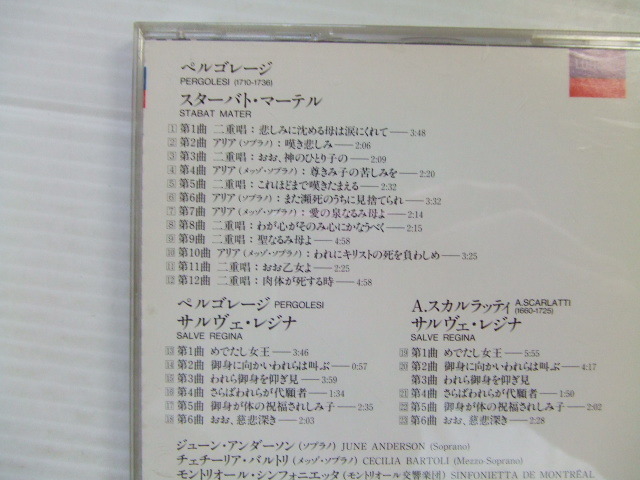 ペルゴレージ
PERGOLESI (1710-1736)
スターバト・マーテル
STABAT MATER
1 第1曲 二重唱：悲しみに沈める母は涙にくれて──3:48
2 第2曲 アリア（ソプラノ）：嘆き悲しみ──2:06
3 第3曲 二重唱：おお、神のひとり子の──2:09
4 第4曲 アリア（メッゾ・ソプラノ）：尊きみ子の苦しみを──2:20
5 第5曲 二重唱：これほどまで嘆きたまえる──2:32
6 第6曲 アリア（ソプラノ）：また瀕死のうちに見捨てられ──3:32
7 第7曲 アリア（メッゾ・ソプラノ）：愛の泉なるみ母よ──2:14
8 第8曲 二重唱：わが心がそのみ心にかなうべく──2:15
9 第9曲 二重唱：聖なるみ母よ──4:58
10 第10曲 アリア（メッゾ・ソプラノ）：われにキリストの死を負わしめ──3:25
11 第11曲 二重唱：おお乙女よ──2:25
12 第12曲 二重唱：肉体が死する時──4:58
ペルゴレージ PERGOLESI
サルヴェ・レジナ
SALVE REGINA
13 第1曲 めでたし女王──3:46
14 第2曲 御身に向かいわれらは叫ぶ──0:57
15 第3曲 われら御身を仰ぎ見──3:59
16 第4曲 さらばわれらが代願者──1:34
17 第5曲 御身が体の祝福されしみ子──2:35
18 第6曲 おお、慈悲深き──2:03
A.スカルラッティ A.SCARLATTI (1660-1725)
サルヴェ・レジナ
SALVE REGINA
19 第1曲 めでたし女王──5:55
20 第2曲 御身に向かいわれらは叫ぶ──4:17
第3曲 われら御身を仰ぎ見
21 第4曲 さらばわれらが代願者──1:50
22 第5曲 御身が体の祝福されしみ子──2:02
23 第6曲 おお、慈悲深き──2:28
ジューン・アンダーソン（ソプラノ）JUNE ANDERSON (Soprano)
チェチーリア・バルトリ（メッゾ・ソプラノ）CECILIA BARTOLI (Mezzo-Soprano)
モントリオール・シンフォニエッタ（モントリオール交響楽団）SINFONIETTA DE MONTRÉAL